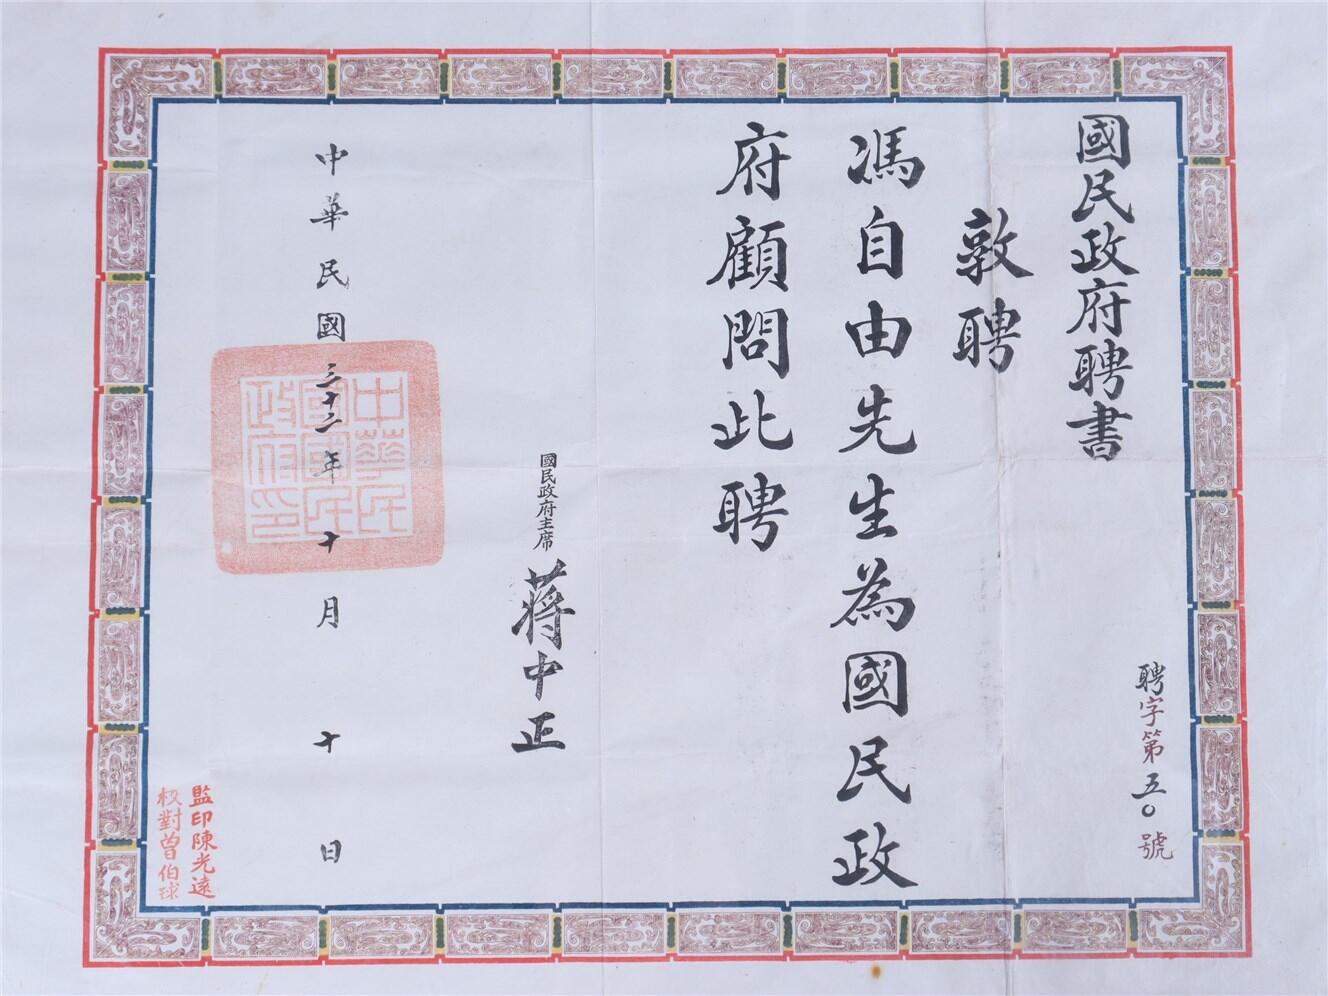 國民政府聘書
聘字第五〇號
敦聘
馮自由先生為國民政
府顧問此聘
國民政府主席 蔣中正
中華民國三十二年十月十日
中華民
國國民
政府印
監印陳光遠
校對曾伯球